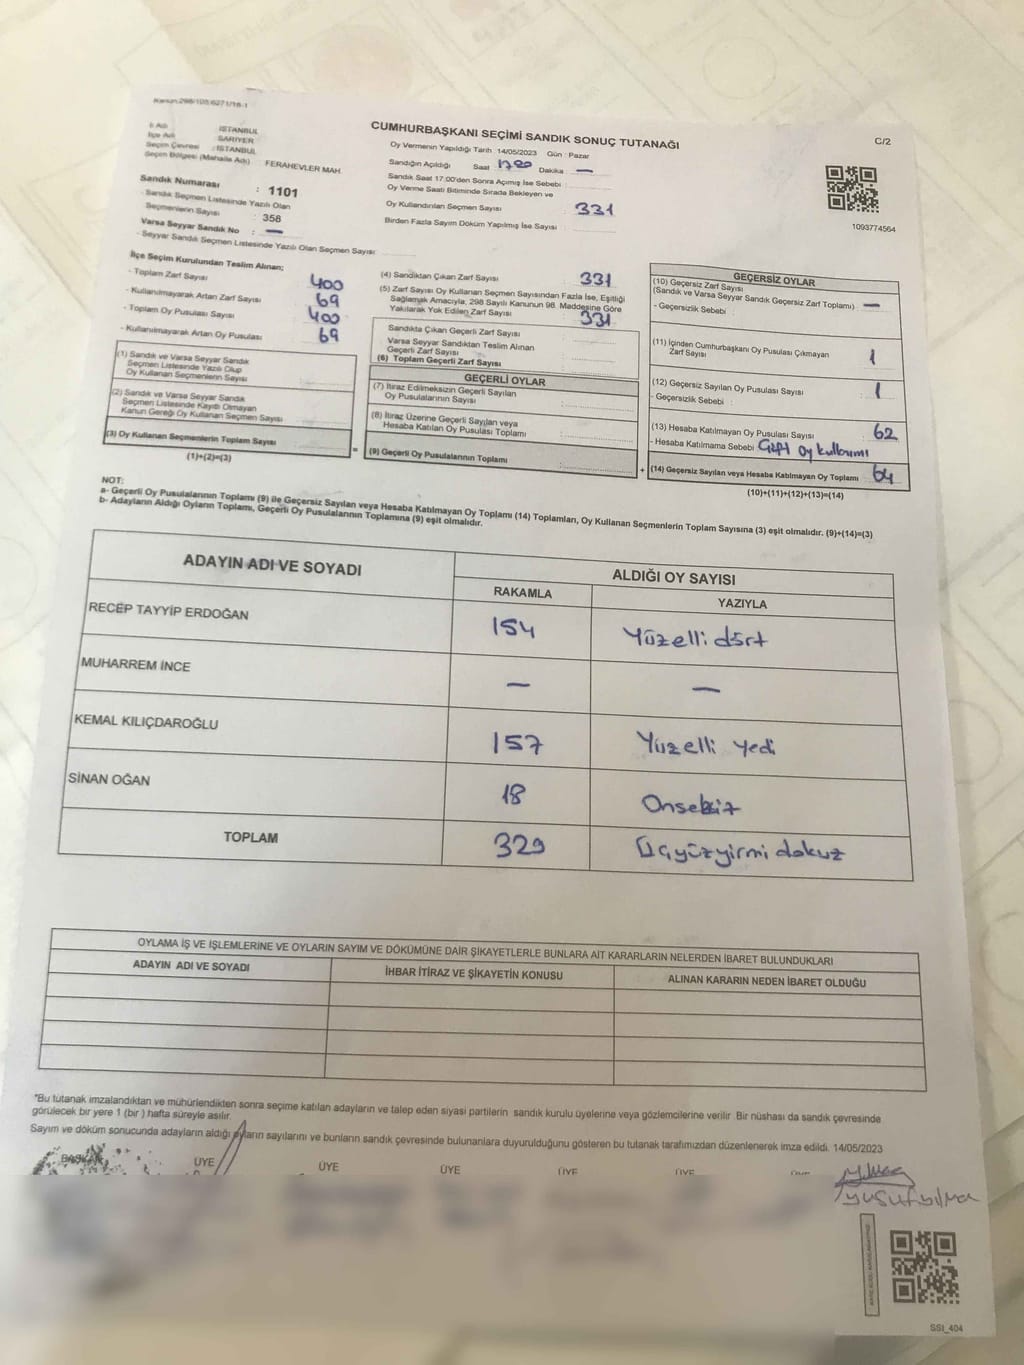 Kanun:298/105;6271/16-1
CUMHURBAŞKANI SEÇİMİ SANDIK SONUÇ TUTANAĞI
C/2
İl Adı : İSTANBUL
İlçe Adı : SARIYER
Seçim Çevresi : İSTANBUL
Seçim Bölgesi (Mahalle Adı) : FERAHEVLER MAH.
Sandık Numarası : 1101
- Sandık Seçmen Listesinde Yazılı Olan
Seçmenlerin Sayısı : 358
Varsa Seyyar Sandık No : —
- Seyyar Sandık Seçmen Listesinde Yazılı Olan Seçmen Sayısı :
Oy Vermenin Yapıldığı Tarih 14/05/2023 Gün : Pazar
Sandığın Açıldığı Saat 1700 Dakika : —
Sandık Saat 17:00'den Sonra Açımış İse Sebebi :
Oy Verme Saati Bitiminde Sırada Bekleyen ve
Oy Kullandırılan Seçmen Sayısı : 331
Birden Fazla Sayım Döküm Yapılmış İse Sayısı :
1093774564
İlçe Seçim Kurulundan Teslim Alınan;
- Toplam Zarf Sayısı : 400
- Kullanılmayarak Artan Zarf Sayısı : 69
- Toplam Oy Pusulası Sayısı : 400
- Kullanılmayarak Artan Oy Pusulası : 69
(1) Sandık ve Varsa Seyyar Sandık
Seçmen Listesinde Yazılı Olup
Oy Kullanan Seçmenlerin Sayısı
(2) Sandık ve Varsa Seyyar Sandık
Seçmen Listesinde Kayıtlı Olmayan
Kanun Gereği Oy Kullanan Seçmen Sayısı :
(3) Oy Kullanan Seçmenlerin Toplam Sayısı :
(1)+(2)=(3)
(4) Sandıktan Çıkan Zarf Sayısı : 331
(5) Zarf Sayısı Oy Kullanan Seçmen Sayısından Fazla İse, Eşitliği
Sağlamak Amacıyla, 298 Sayılı Kanunun 98. Maddesine Göre
Yakılarak Yok Edilen Zarf Sayısı : 331
Sandıkta Çıkan Geçerli Zarf Sayısı :
Varsa Seyyar Sandıktan Teslim Alınan
Geçerli Zarf Sayısı :
(6) Toplam Geçerli Zarf Sayısı :
GEÇERLİ OYLAR
(7) İtiraz Edilmeksizin Geçerli Sayılan
Oy Pusulalarının Sayısı :
(8) İtiraz Üzerine Geçerli Sayılan veya
Hesaba Katılan Oy Pusulası Toplamı :
= (9) Geçerli Oy Pusulalarının Toplamı :
GEÇERSİZ OYLAR
(10) Geçersiz Zarf Sayısı
(Sandık ve Varsa Seyyar Sandık Geçersiz Zarf Toplamı) : —
- Geçersizlik Sebebi :
(11) İçinden Cumhurbaşkanı Oy Pusulası Çıkmayan
Zarf Sayısı : 1
(12) Geçersiz Sayılan Oy Pusulası Sayısı : 1
- Geçersizlik Sebebi :
(13) Hesaba Katılmayan Oy Pusulası Sayısı : 62
- Hesaba Katılmama Sebebi : Çift oy kullanımı
+ (14) Geçersiz Sayılan veya Hesaba Katılmayan Oy Toplamı : 64
(10)+(11)+(12)+(13)=(14)
NOT:
a- Geçerli Oy Pusulalarının Toplamı (9) ile Geçersiz Sayılan veya Hesaba Katılmayan Oy Toplamı (14) Toplamları, Oy Kullanan Seçmenlerin Toplam Sayısına (3) eşit olmalıdır. (9)+(14)=(3)
b- Adayların Aldığı Oyların Toplamı, Geçerli Oy Pusulalarının Toplamına (9) eşit olmalıdır.
ADAYIN ADI VE SOYADI
ALDIĞI OY SAYISI
RAKAMLA YAZIYLA
RECEP TAYYİP ERDOĞAN 154 Yüzelli dört
MUHARREM İNCE — —
KEMAL KILIÇDAROĞLU 157 Yüzelli yedi
SİNAN OĞAN 18 Onsekiz
TOPLAM 329 Üçyüzyirmi dokuz
OYLAMA İŞ VE İŞLEMLERİNE VE OYLARIN SAYIM VE DÖKÜMÜNE DAİR ŞİKAYETLERLE BUNLARA AİT KARARLARIN NELERDEN İBARET BULUNDUKLARI
ADAYIN ADI VE SOYADI İHBAR İTİRAZ VE ŞİKAYETİN KONUSU ALINAN KARARIN NEDEN İBARET OLDUĞU
"Bu tutanak imzalandıktan ve mühürlendikten sonra seçime katılan adayların ve talep eden siyasi partilerin sandık kurulu üyelerine veya gözlemcilerine verilir Bir nüshası da sandık çevresinde
görülecek bir yere 1 (bir ) hafta süreyle asılır.
Sayım ve döküm sonucunda adayların aldığı oyların sayılarını ve bunların sandık çevresinde bulunanlara duyurulduğunu gösteren bu tutanak tarafımızdan düzenlenerek imza edildi. 14/05/2023
BAŞKAN ÜYE ÜYE ÜYE ÜYE ÜYE
SSI_404